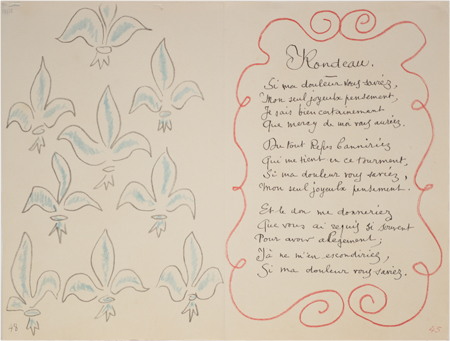 Rondeau.
Si ma douleur vous saviez,
Mon seul joyeulx pensement,
Je sais bien certainement
Que mercy de moi vous auriez.
Du tout Refus banniriez
Qui me tient en ce tourment,
Si ma douleur vous saviez,
Mon seul joyeulx pensement.
Et le don me donneriez
Que vous ai requis si souvent
Pour avoir alegement;
Jà ne m'en escondiriez,
Si ma douleur vous saviez.
48
45